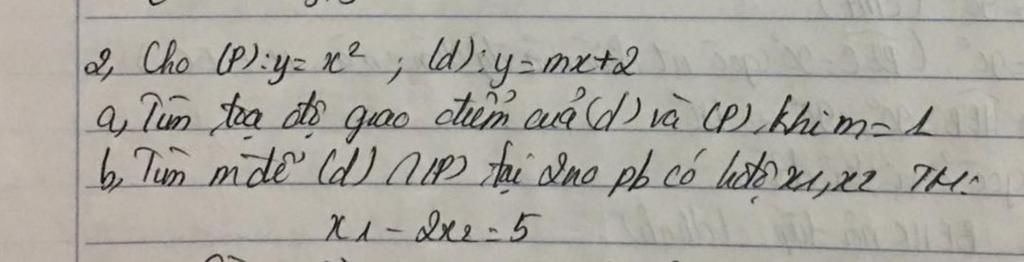 2, Cho (P): y = x² ; (d): y = mx+2
a, Tìm tọa độ giao điểm của (d) và (P) khi m = 1
b, Tìm m để (d) ∩ (P) tại 2 no pb có hđộ x1, x2 TM:
x1 - 2x2 = 5